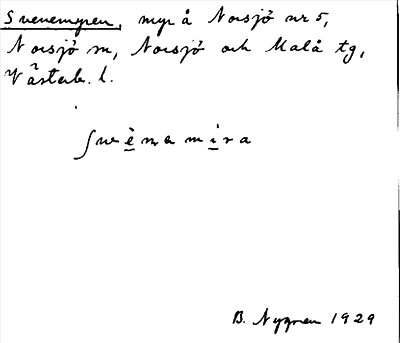 Svenemyren, myr å Norsjö nr 5,
Norsjö sn, Norsjö och Malå tg,
Västerb. l.
ʃvenamira
B. Nygren 1929